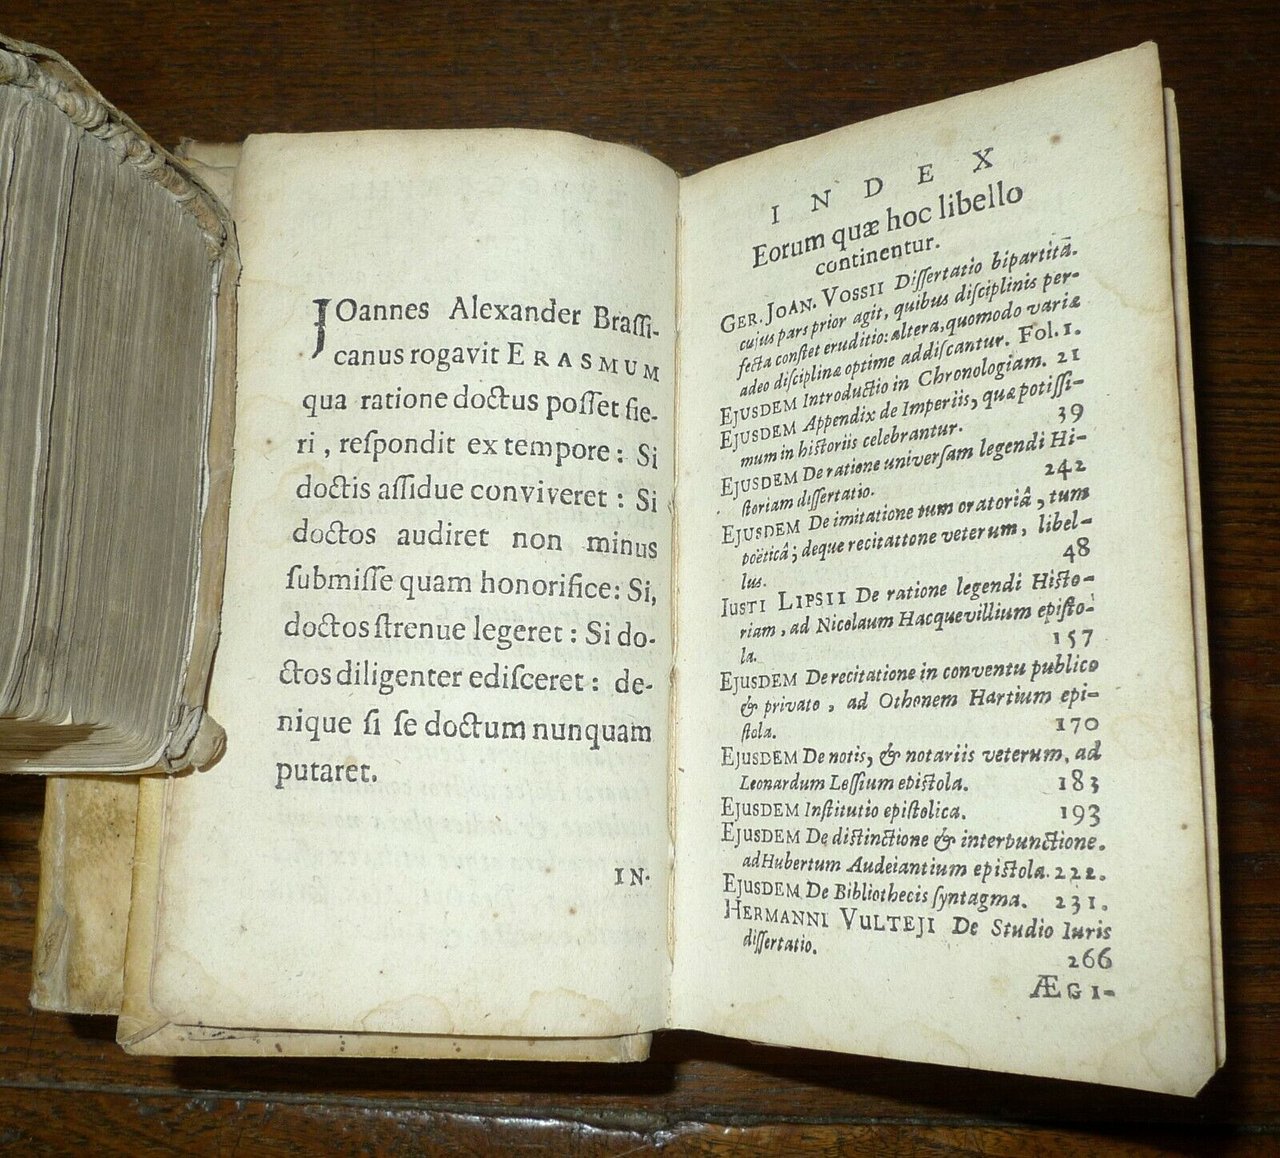 JOannes Alexander Braſſi-
canus rogavit ERASMUM
qua ratione doctus poſſet fie-
ri, reſpondit ex tempore: Si
doctis aſſidue conviveret: Si
doctos audiret non minus
ſubmiſſe quam honorifice: Si,
doctos ſtrenue legeret: Si do-
ctos diligenter ediſceret: de-
nique ſi ſe doctum nunquam
putaret.
IN-
INDEX
Eorum quæ hoc libello
continentur.
GER. JOAN. VOSSII Diſſertatio bipartitā.
cujus pars prior agit, quibus diſciplinis per-
fecta conſtet eruditio: altera, quomodo variæ
adeo diſciplinæ optime addiſcantur. Fol. 1.
EJUSDEM Introductio in Chronologiam. 21
EJUSDEM Appendix de Imperiis, quæ potiſſi-
mum in hiſtoriis celebrantur. 39
EJUSDEM De ratione univerſam legendi Hi-
ſtoriam diſſertatio. 242
EJUSDEM De imitatione tum oratoriâ, tum
poëticâ; deque recitattone veterum, libel-
lus. 48
IUSTI LIPSII De ratione legendi Hiſto-
riam, ad Nicolaum Hacquevillium epiſto-
la. 157
EJUSDEM De recitatione in conventu publico
& privato, ad Othonem Hartium epi-
ſtola. 170
EJUSDEM De notis, & notariis veterum, ad
Leonardum Leſſium epiſtola. 183
EJUSDEM Inſtitutio epiſtolica. 193
EJUSDEM De diſtinctione & interpunctione.
ad Hubertum Audeiantium epiſtola. 222.
EJUSDEM De Bibliothecis ſyntagma. 231.
HERMANNI VULTEJI De Studio Iuris
diſſertatio.
266
ÆGI-